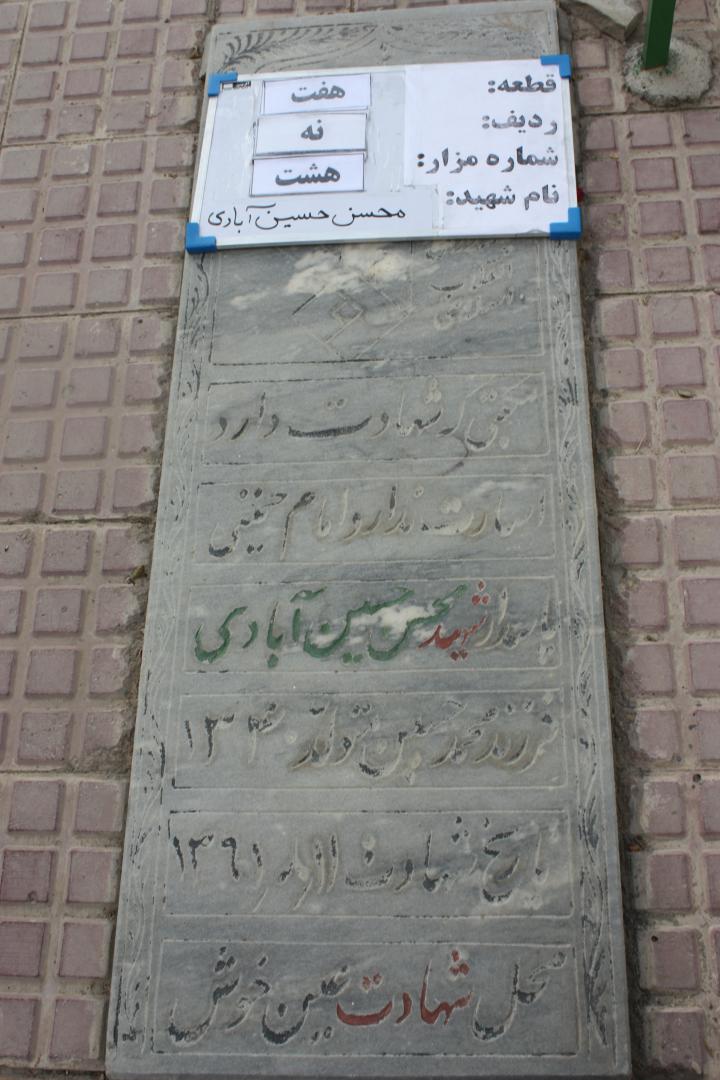 قطعه: هفت
ردیف: نه
شماره مزار: هشت
نام شهید: محسن حسین آبادی
انقلاب
اسلامی
که شهادت دارد
اسارت ندارد امام خمینی
پاسدار شهید محسن حسین آبادی
فرزند محمد حسین تولد ۱۳۴۰
تاریخ شهادت ۱۳۶۱
محل شهادت عین خوش